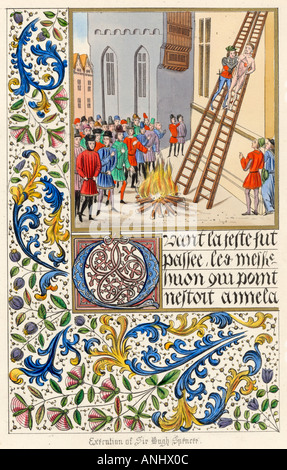 Quant la feste fut
passee, les messe
nuon qui point
nestoit anne la
Execution of Sir Hugh Spencer.
alamy
alamy
Image ID: ANHX0C
www.alamy.com